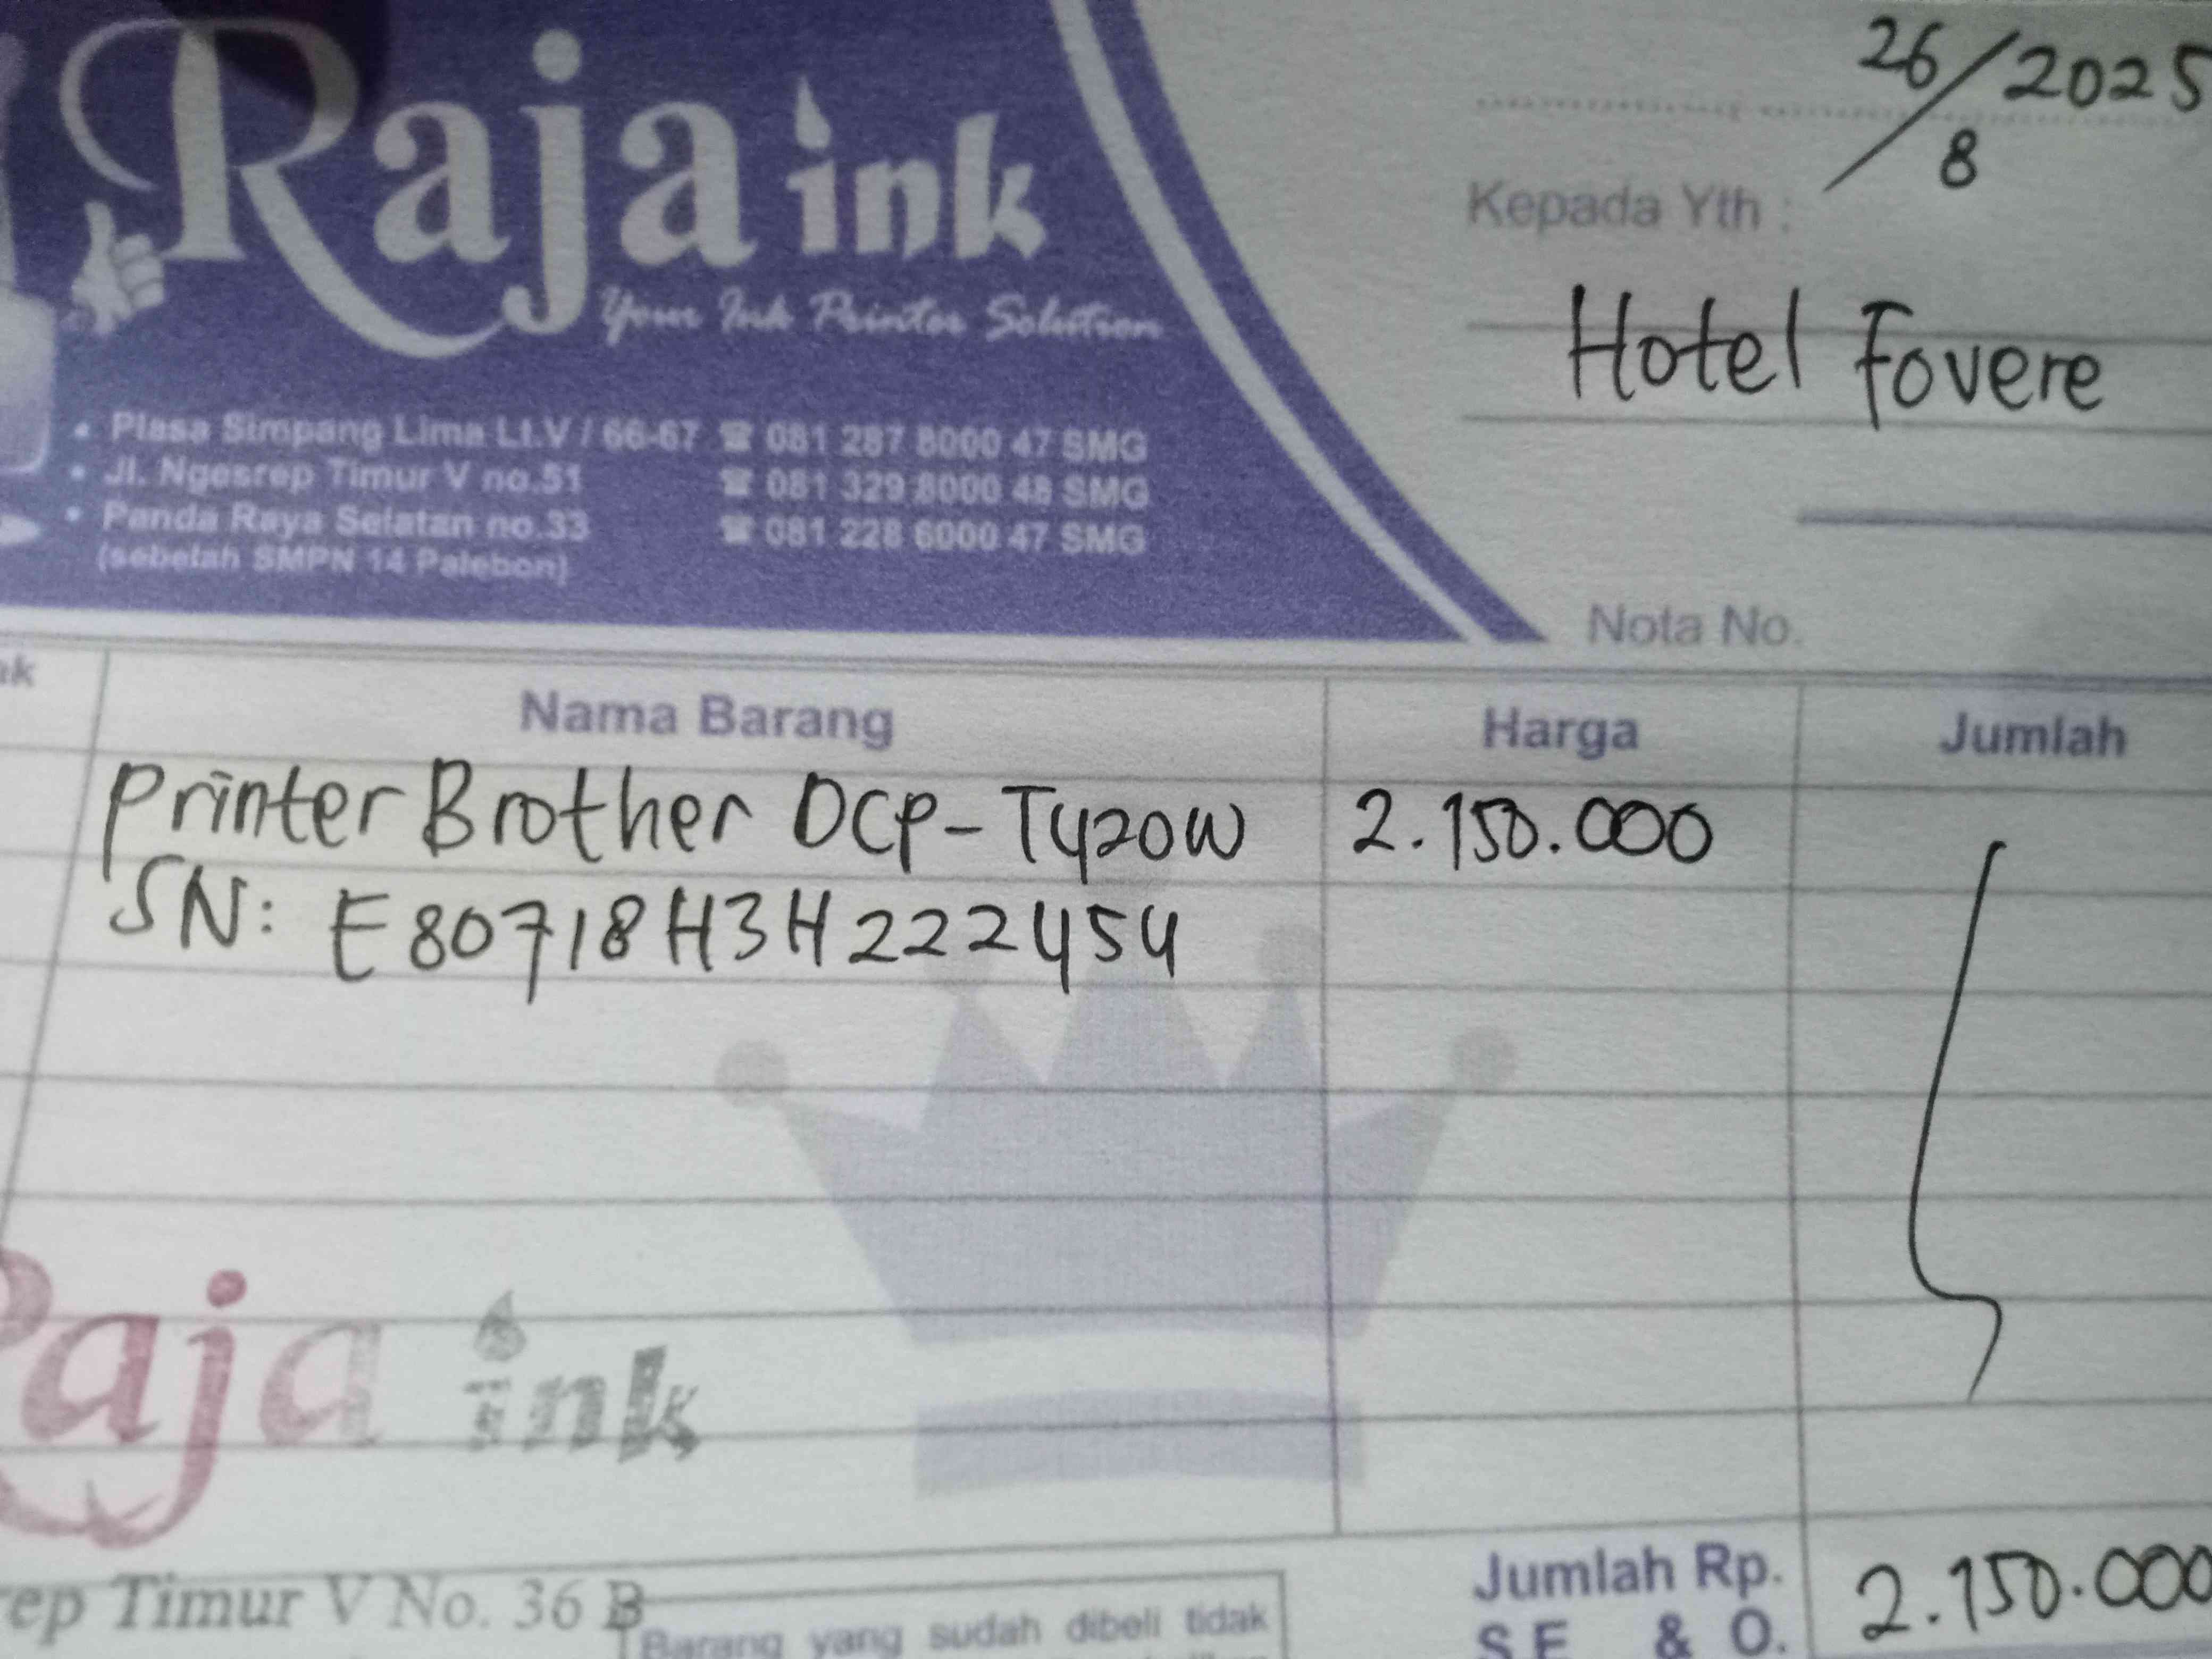 Raja ink
Your Ink Printer Solution
• Plasa Simpang Lima Lt.V / 66-67 ☎ 081 287 8000 47 SMG
• Jl. Ngesrep Timur V no.51 ☎ 081 329 8000 48 SMG
• Panda Raya Selatan no.33 ☎ 081 228 6000 47 SMG
(sebelah SMPN 14 Palebon)
26/8/2025
Kepada Yth :
Hotel Fovere
Nota No.
Nama Barang Harga Jumlah
Printer Brother DCP-T420W 2.150.000
SN: E80718H3H222454
Raja ink
Jumlah Rp. 2.150.000
rep Timur V No. 36 B
Barang yang sudah dibeli tidak
S.E & O.